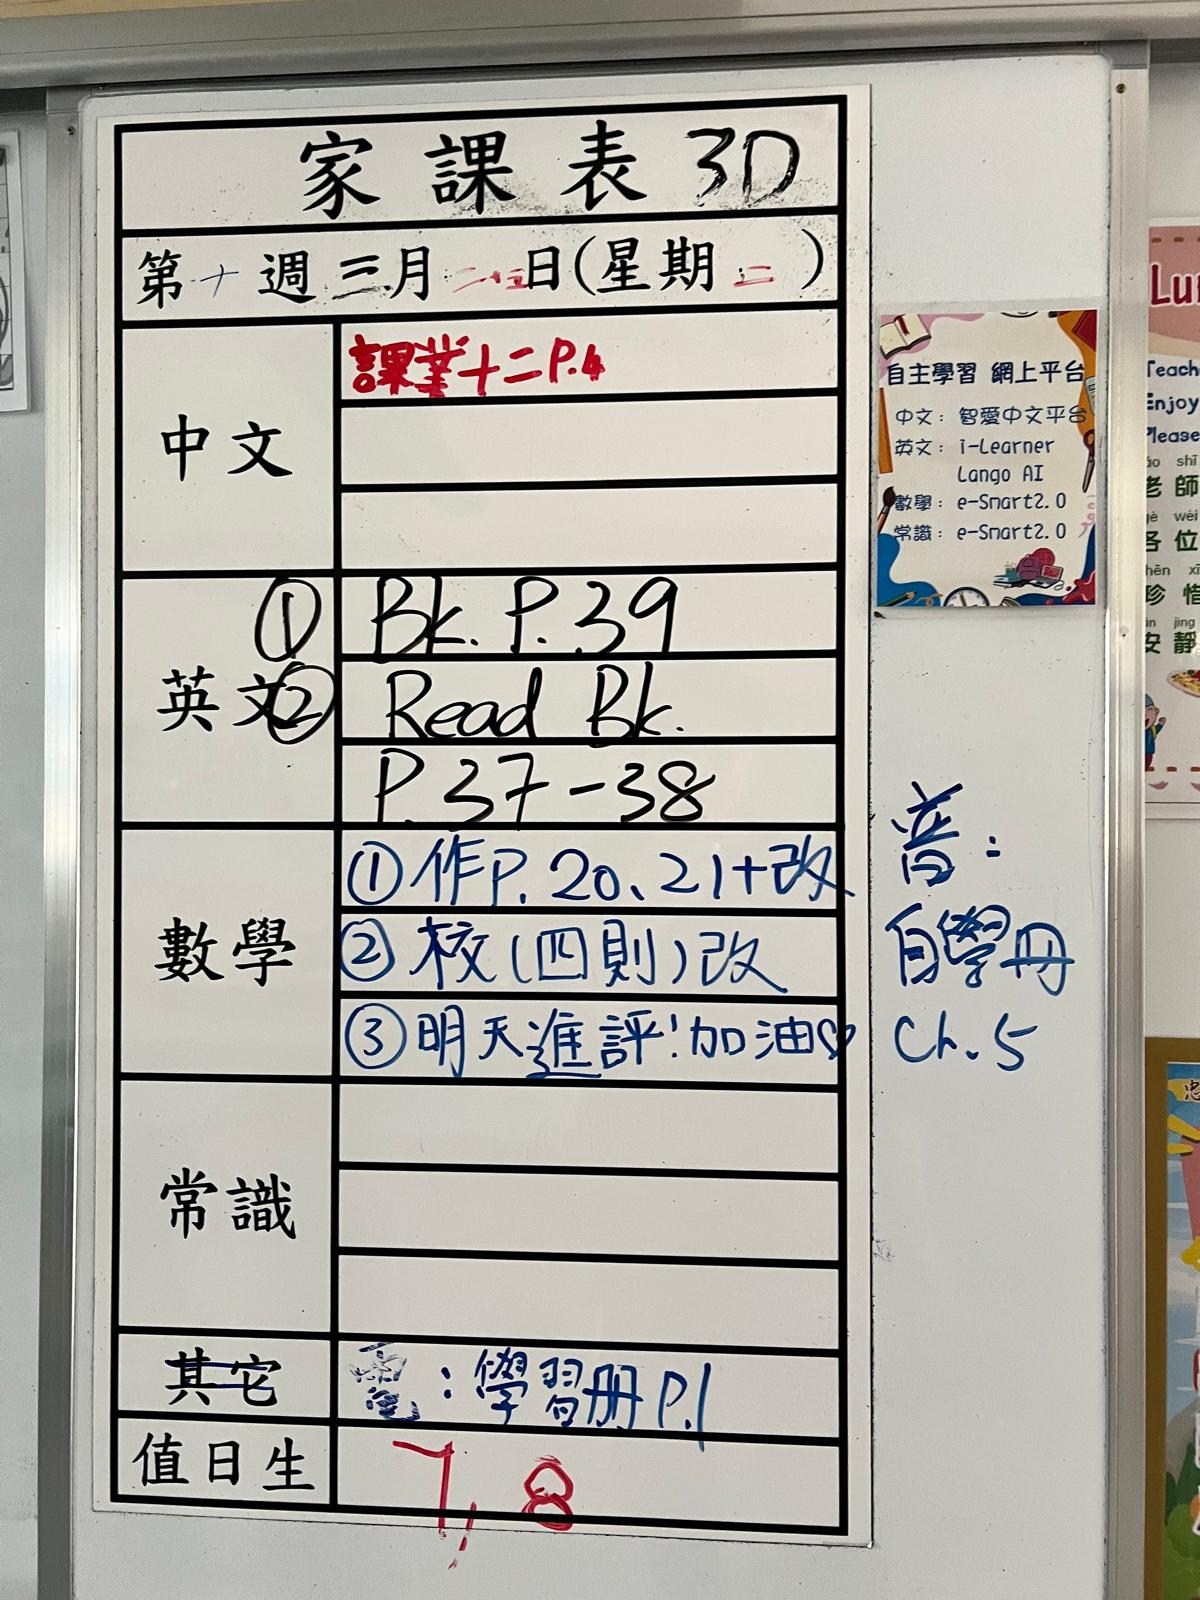 家課表 3D
第十週三月二十五日(星期二)
中文
課業十二P.4
英文
① Bk. P.39
② Read Bk.
P.37-38
數學
①作P.20、21+改
②校(四則)改
③明天進評!加油♡
常識
其它
電:學習册P.1
值日生
7, 8
普:
自學冊
Ch.5
自主學習 網上平台
中文: 智愛中文平台
英文: i-Learner
Lango AI
數學: e-Smart2.0
常識: e-Smart2.0
Teache
Enjoy
Please
老師
各位
珍惜
安靜
忠